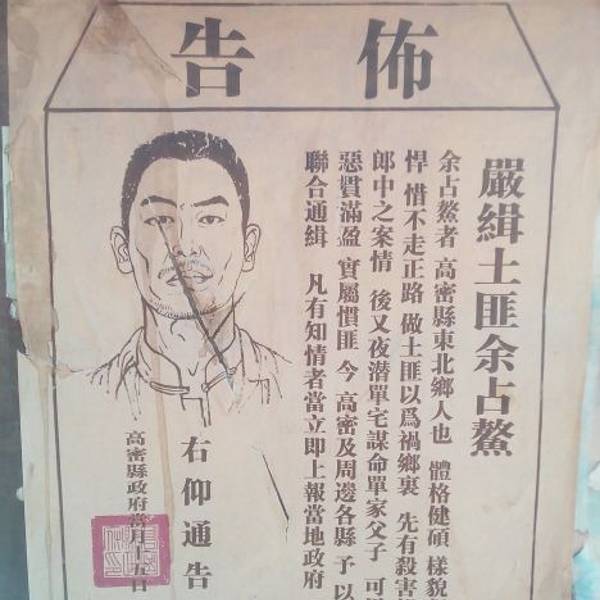 佈告
嚴緝土匪余占鰲
余占鰲者 高密縣東北鄉人也 體格健碩 樣貌
悍 惜不走正路 做土匪以爲禍鄉裏 先有殺害
郎中之案情 後又夜潛單宅謀命單家父子 可
惡貫滿盈 實屬慣匪 今 高密及周邊各縣 予以
聯合通緝 凡有知情者當立即上報當地政府
右仰通告
高密縣政府當月十五日